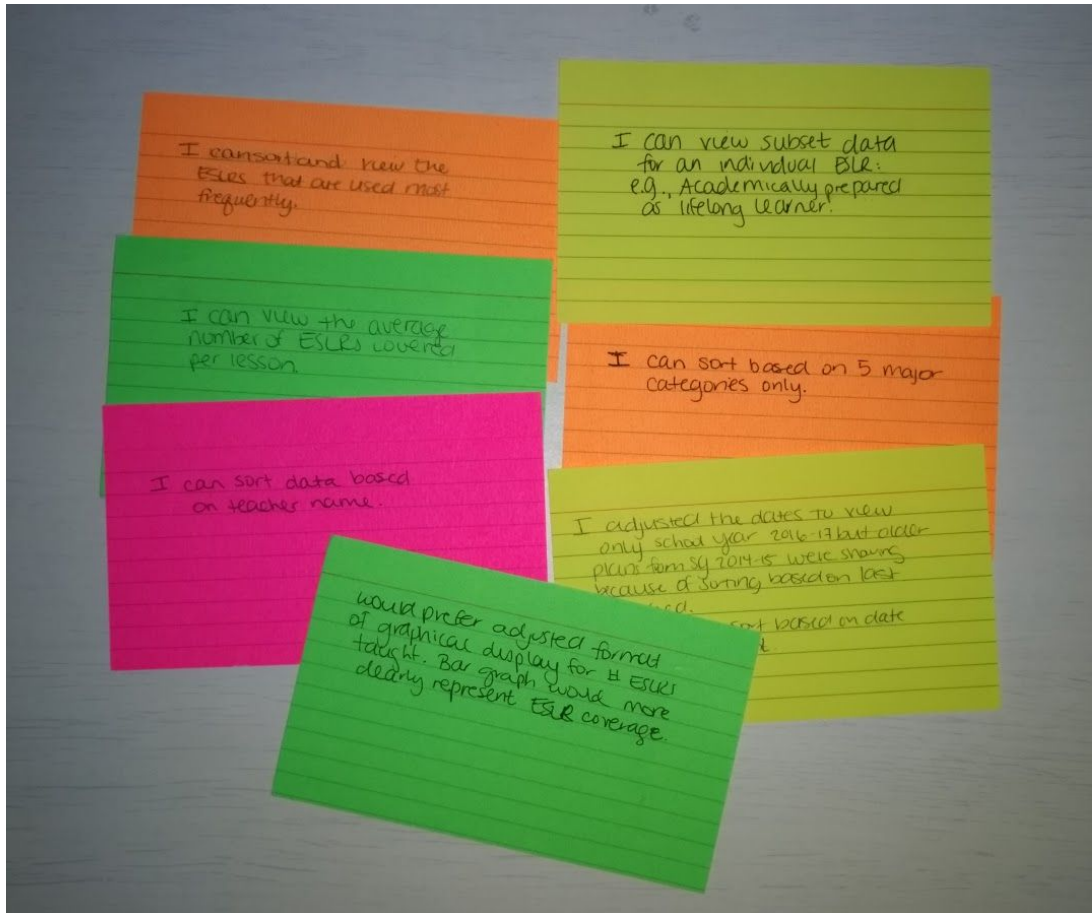 I can sort and view the
ESLRs that are used most
frequently.
I can view subset data
for an individual ESLR:
e.g., Academically prepared
as lifelong learner.
I can view the average
number of ESLRs covered
per lesson.
I can sort based on 5 major
categories only.
I can sort data based
on teacher name.
I adjusted the dates to view
only school year 2016-17 but older
plans from SY 2014-15 were showing
because of sorting based on last
sort based on date
would prefer adjusted format
of graphical display for # ESLRs
taught. Bar graph would more
clearly represent ESLR coverage.